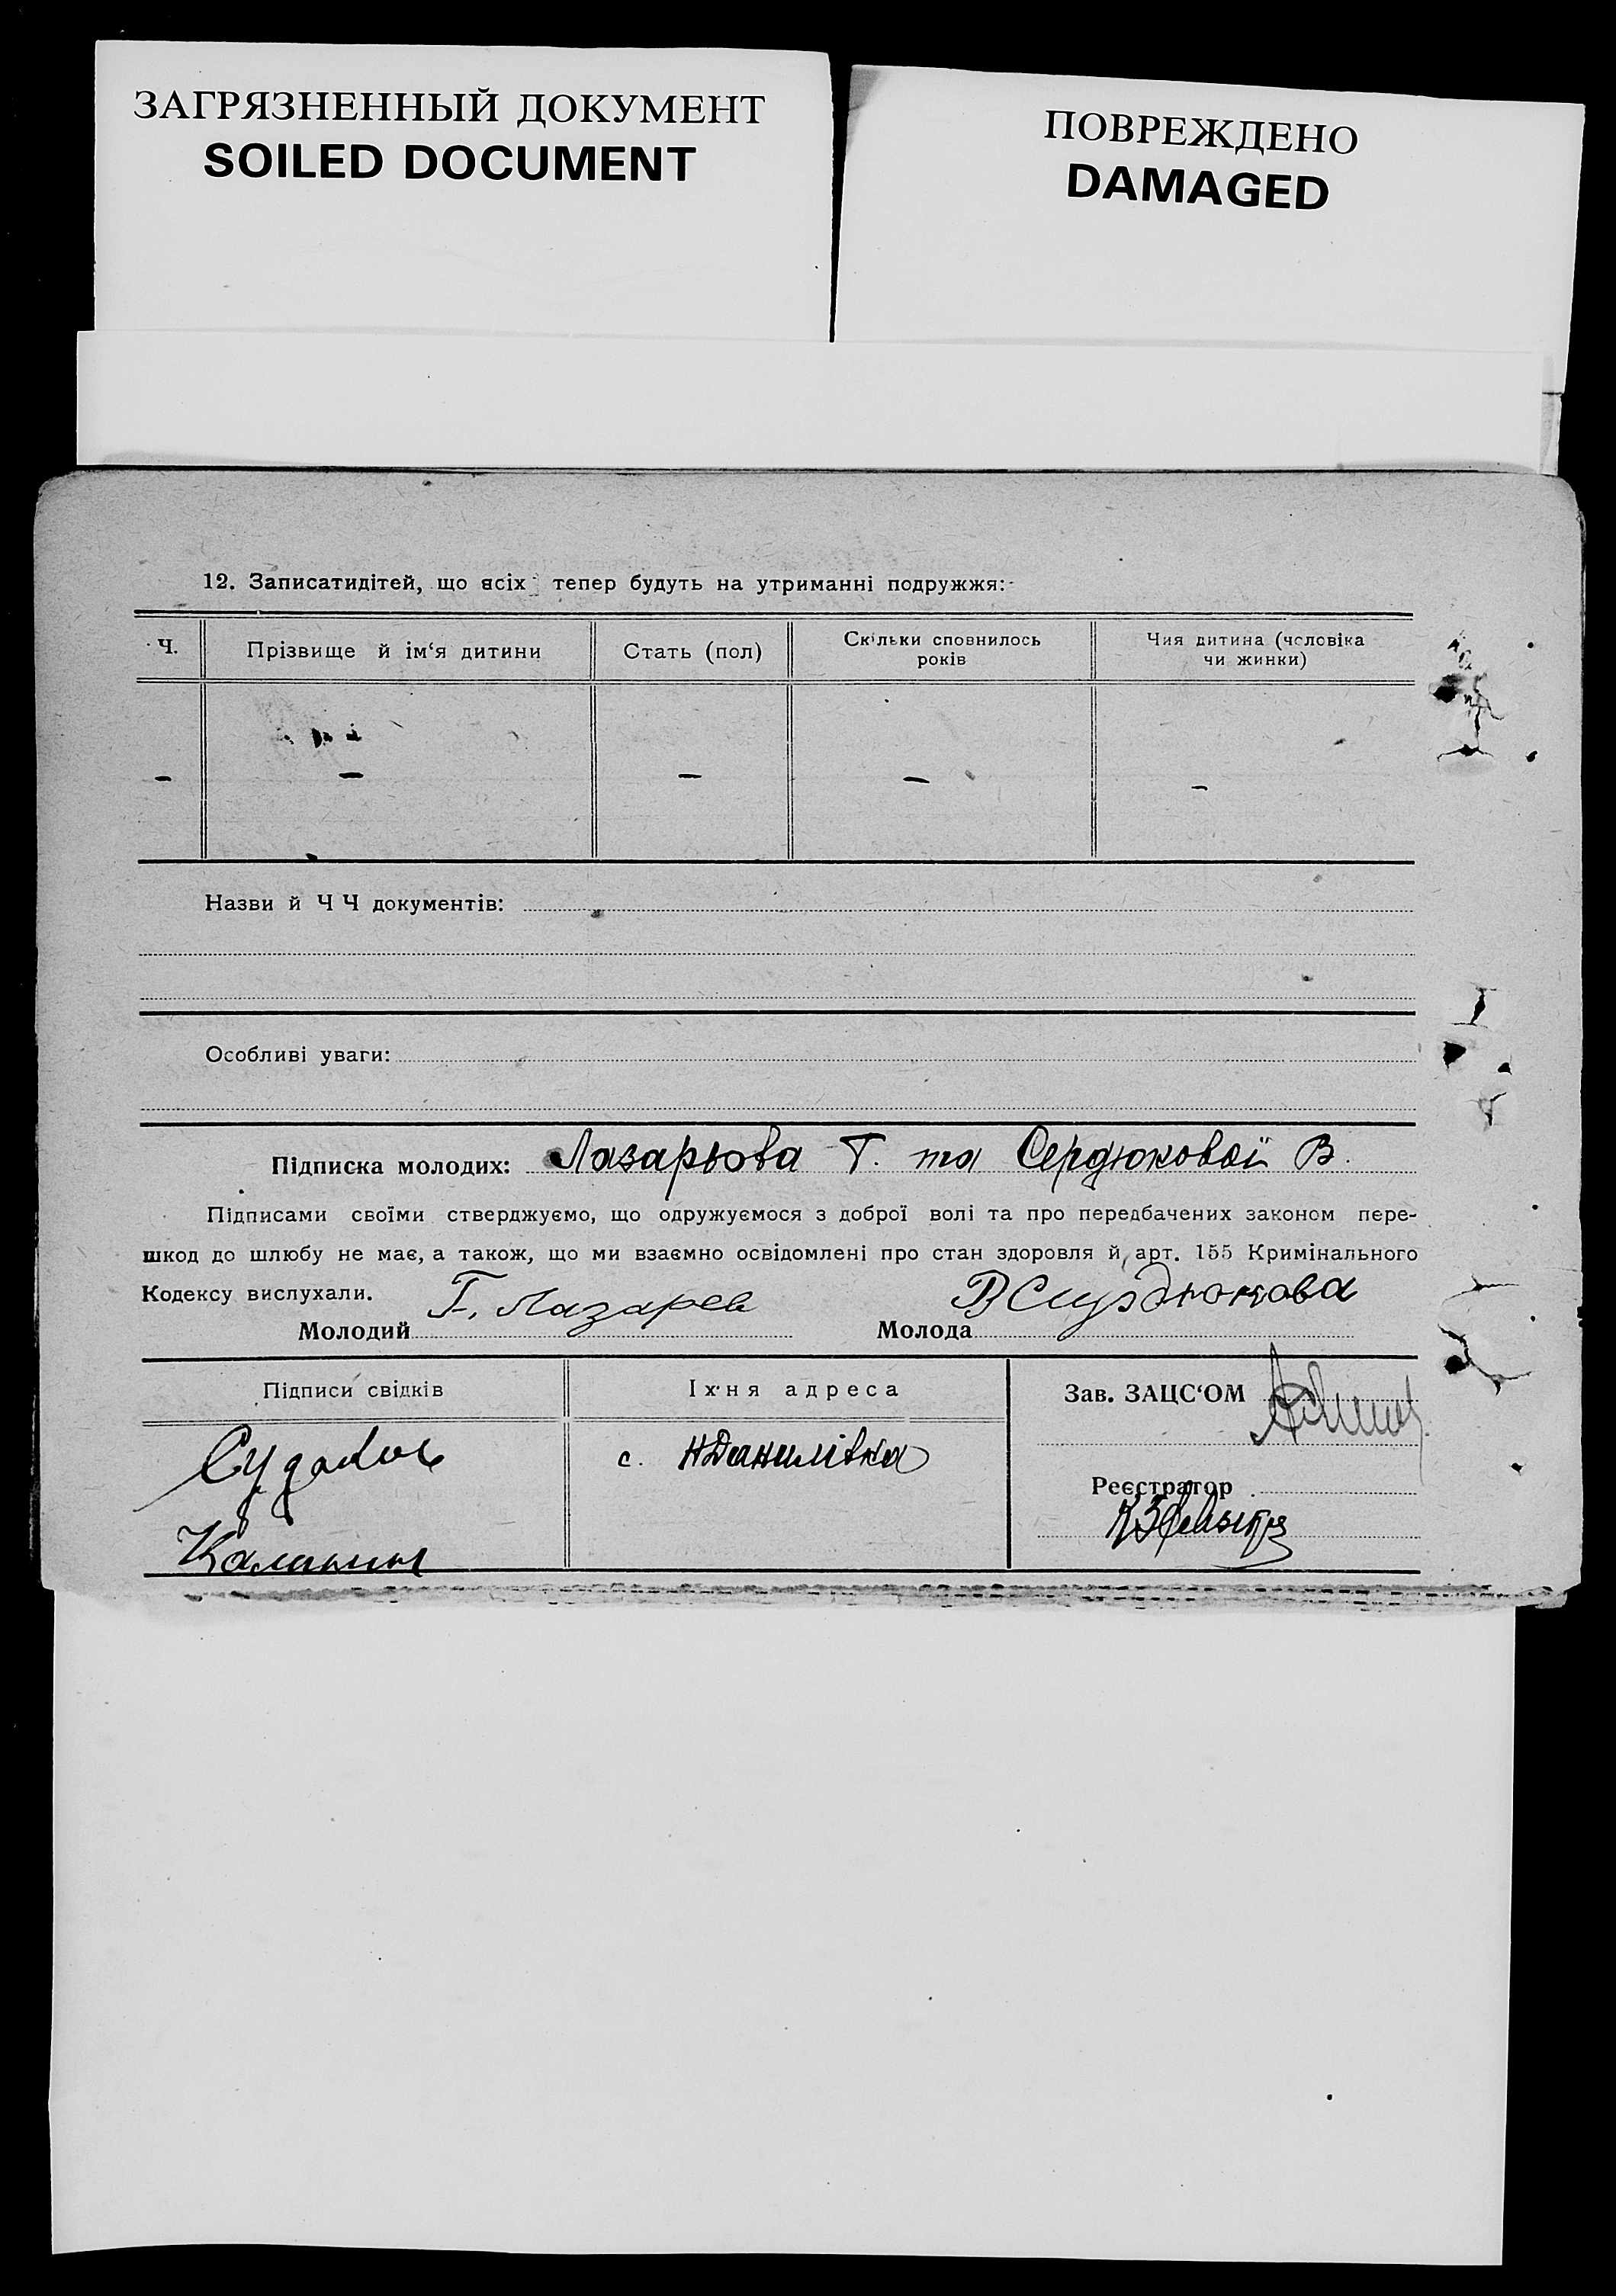 ЗАГРЯЗНЕННЫЙ ДОКУМЕНТ
SOILED DOCUMENT
ПОВРЕЖДЕНО
DAMAGED
12. Записатидітей, що всіх тепер будуть на утриманні подружжя:
Ч. Прізвище й ім‘я дитини Стать (пол) Скільки сповнилось років Чия дитина (чоловіка чи жинки)
– – – – –
Назви й Ч Ч документів:
Особливі уваги:
Підписка молодих: Лазарьова Г. та Сердюкової В.
Підписами своїми стверджуємо, що одружуємося з доброї волі та про передбачених законом пере-
шкод до шлюбу не має, а також, що ми взаємно освідомлені про стан здоровля й арт. 155 Кримінального
Кодексу вислухали.
Молодий Г. Лазарев Молода В Сирдюкова
Підписи свідків Іх'ня адреса Зав. ЗАЦС‘ОМ
Судаков с. НДанилівка
Реєстратор
Калинин